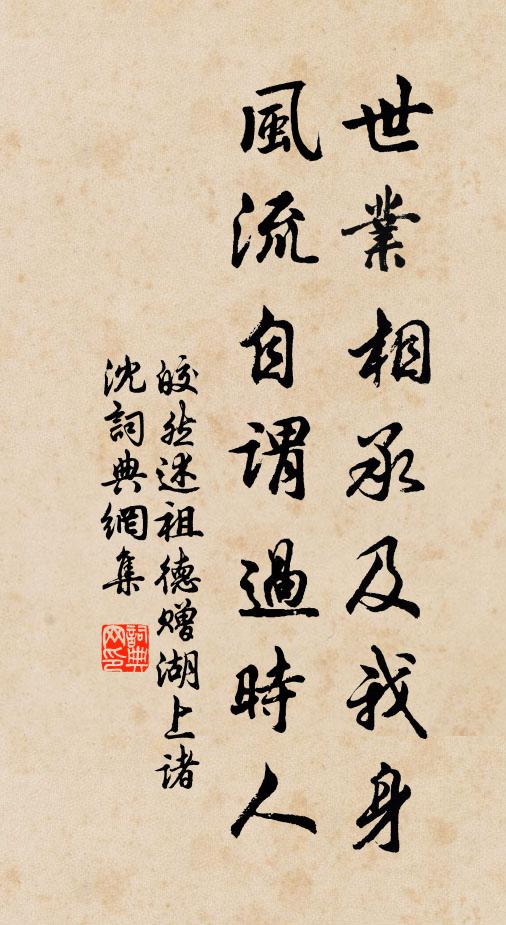 世業相承及我身
風流自謂過時人
皎然述祖德贈湖上諸
沈詞典網集
詞典
网印